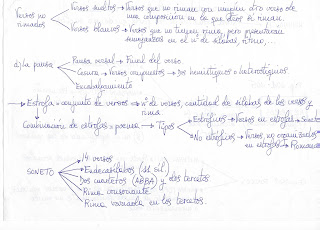 Versos sueltos → Versos que no riman con ningún otro verso de
una composición en la que éstos sí riman.
Versos no
rimados
Versos blancos → Versos que no tienen rima, pero presentan
semejanzas en el nº de sílabas, ritmo,...
d) La pausa
Pausa versal → Final del verso
Cesura → Versos compuestos → Dos hemistiquios o heterostiquios
Encabalgamiento
→ Estrofa = conjunto de versos → Nº de versos, cantidad de sílabas de los versos y
rima
Combinación de estrofas = poema → Tipos
Estróficos → Versos en estrofas → Soneto
No estróficos → Versos no organizados
en estrofas → Romance
SONETO
14 versos
Endecasílabos (11 síl.)
Dos cuartetos (ABBA) y dos tercetos
Rima consonante
Rima variada en los tercetos.